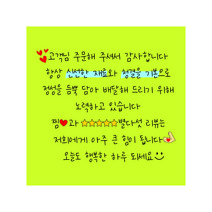 고객님 주문해 주셔서 감사합니다
항상 신선한 재료와 청결을 기본으로
정성을 듬뿍 담아 배달해 드리기 위해
노력하고 있습니다
찜❤과 ⭐⭐⭐⭐⭐별다섯 리뷰는
저희에게 아주 큰 힘이 됩니다
오늘도 행복한 하루 되세요